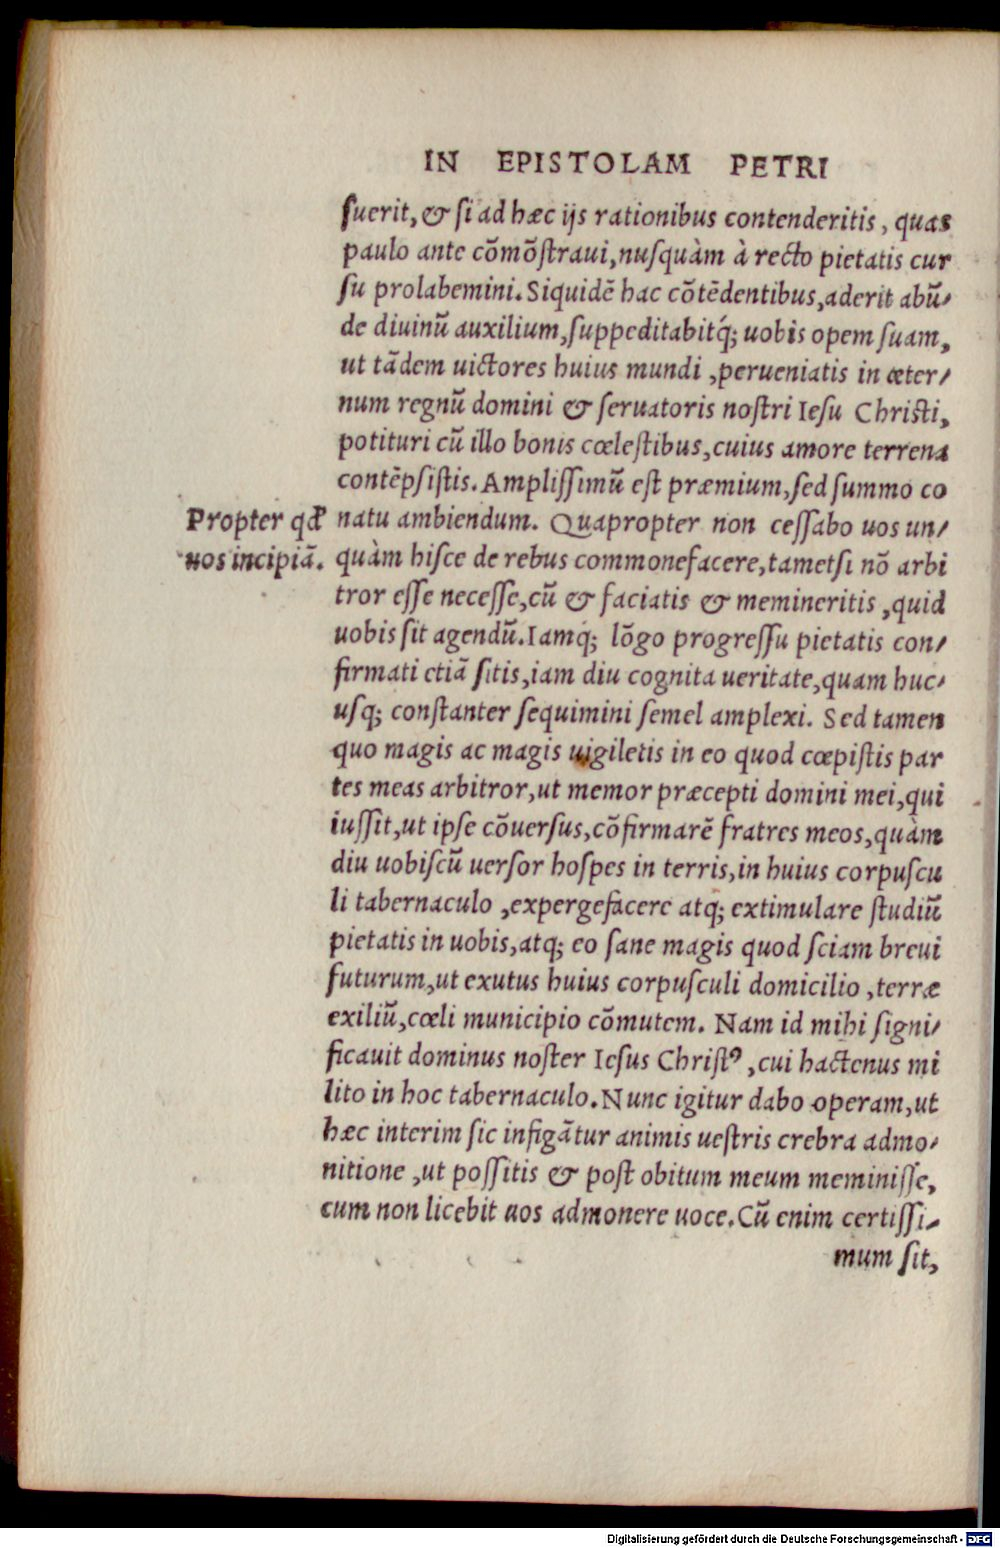 IN EPISTOLAM PETRI
fuerit, & ſi ad hæc ijs rationibus contenderitis, quas
paulo ante cõmõſtraui, nuſquàm à recto pietatis cur
ſu prolabemini. Siquidẽ hac cõtẽdentibus, aderit abũ⸗
de diuinũ auxilium, ſuppeditabitq́; uobis opem ſuam,
ut tãdem uictores huius mundi, perueniatis in æter⸗
num regnũ domini & ſeruatoris noſtri Ieſu Chriſti,
potituri cũ illo bonis cœleſtibus, cuius amore terrena
contẽpſiſtis. Ampliſſimũ eſt præmium, ſed ſummo co
Propter qđ natu ambiendum. Quapropter non ceſſabo uos un⸗
uos incipiã. quàm hiſce de rebus commonefacere, tametſi nõ arbi
tror eſſe neceſſe, cũ & faciatis & memineritis, quid
uobis ſit agendũ. Iamq́; lõgo progreſſu pietatis con⸗
firmati etiã ſitis, iam diu cognita ueritate, quam huc⸗
uſq; conſtanter ſequimini ſemel amplexi. Sed tamen
quo magis ac magis uigiletis in eo quod cœpiſtis par
tes meas arbitror, ut memor præcepti domini mei, qui
iuſſit, ut ipſe cõuerſus, cõfirmarẽ fratres meos, quàm
diu uobiſcũ uerſor hoſpes in terris, in huius corpuſcu
li tabernaculo, expergefacere atq; extimulare ſtudiũ
pietatis in uobis, atq; eo ſane magis quod ſciam breui
futurum, ut exutus huius corpuſculi domicilio, terræ
exiliũ, cœli municipio cõmutem. Nam id mihi ſigni⸗
ficauit dominus noſter Ieſus Chriſtꝰ, cui hactenus mi
lito in hoc tabernaculo. Nunc igitur dabo operam, ut
hæc interim ſic infigãtur animis ueſtris crebra admo⸗
nitione, ut poſſitis & poſt obitum meum meminiſſe,
cum non licebit uos admonere uoce. Cũ enim certiſſi⸗
mum ſit,
Digitalisierung gefördert durch die Deutsche Forschungsgemeinschaft - DFG